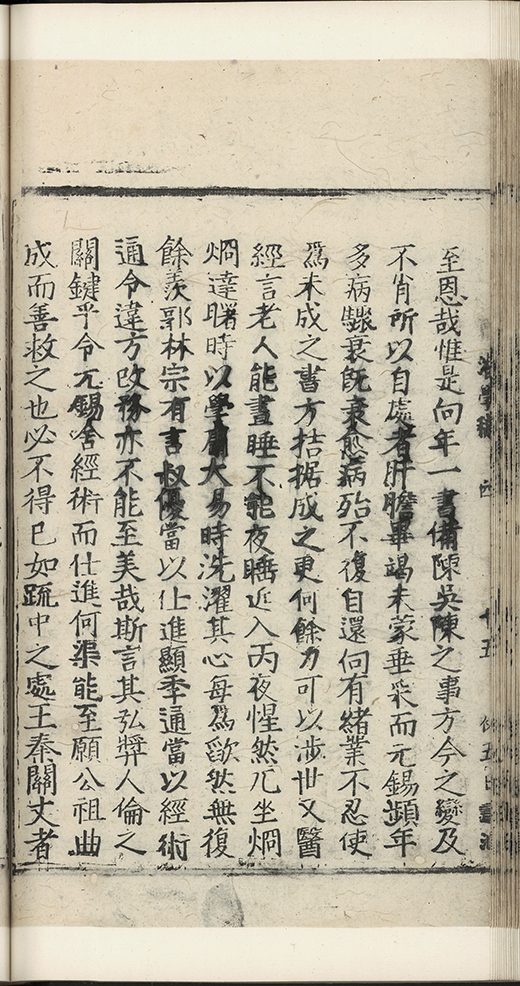 至恩哉惟是向年一書備陳吳陳之事方今之變及
不肖所以自處者肝膽畢竭未蒙垂采而元錫頻年
多病驟衰旣衰愈病殆不復自還向有緒業不忍使
爲未成之書方拮据成之更何餘力可以涉世又醫
經言老人能晝睡不能夜睡近入丙夜惺然兀坐烱
烱達曙時以學庸大易時洗濯其心每爲歎然無復
餘羨郭林宗有言叔優當以仕進顯季通當以經術
通令違方改務亦不能至美哉斯言其弘奬人倫之
關鍵乎令元錫舍經術而仕進何渠能至願公祖曲
成而善救之也必不得已如疏中之處王秦關丈者
十五